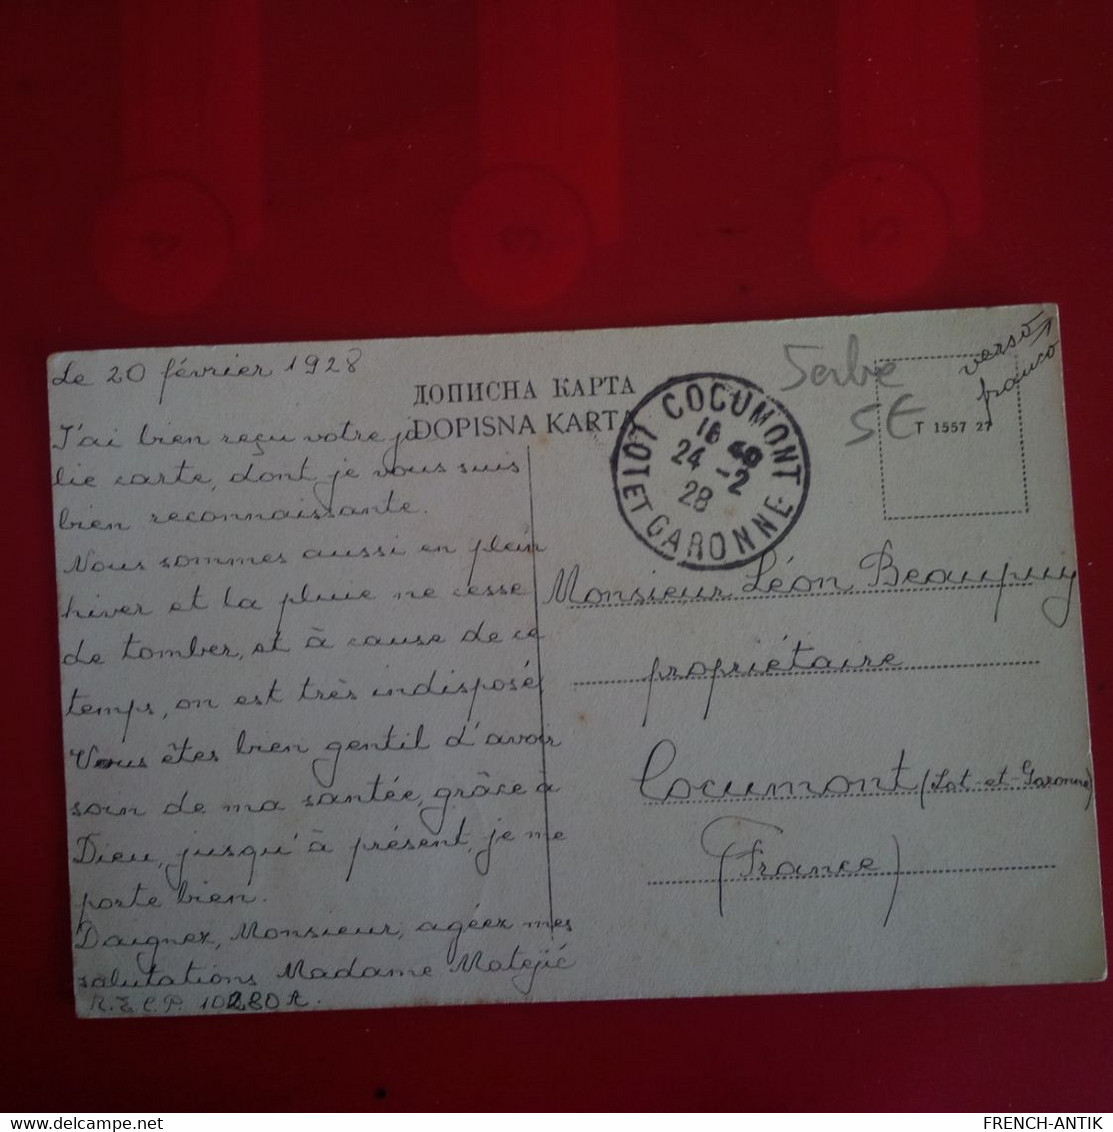 Le 20 février 1928
J'ai bien reçu votre jo
lie carte, dont je vous suis
bien reconnaissante.
Nous sommes aussi en plein
hiver et la pluie ne cesse
de tomber, et à cause de ce
temps, on est très indisposé
Vous êtes bien gentil d'avoir
soin de ma santée, grâce à
Dieu, jusqu'à présent, je me
porte bien.
Daignez, Monsieur, agéez mes
salutations Madame Matejić
R. E C. P. 10280 A.
ДОПИСНА КАРТА
DOPISNA KARTA
COCUMONT
16 40
24 -2
28
LOT ET GARONNE
Serbie
5€
verso
franco
T 1557 27
Monsieur Léon Beaupuy
propriétaire
Cocumont (Lot-et-Garonne)
(France)
FRENCH-ANTIK